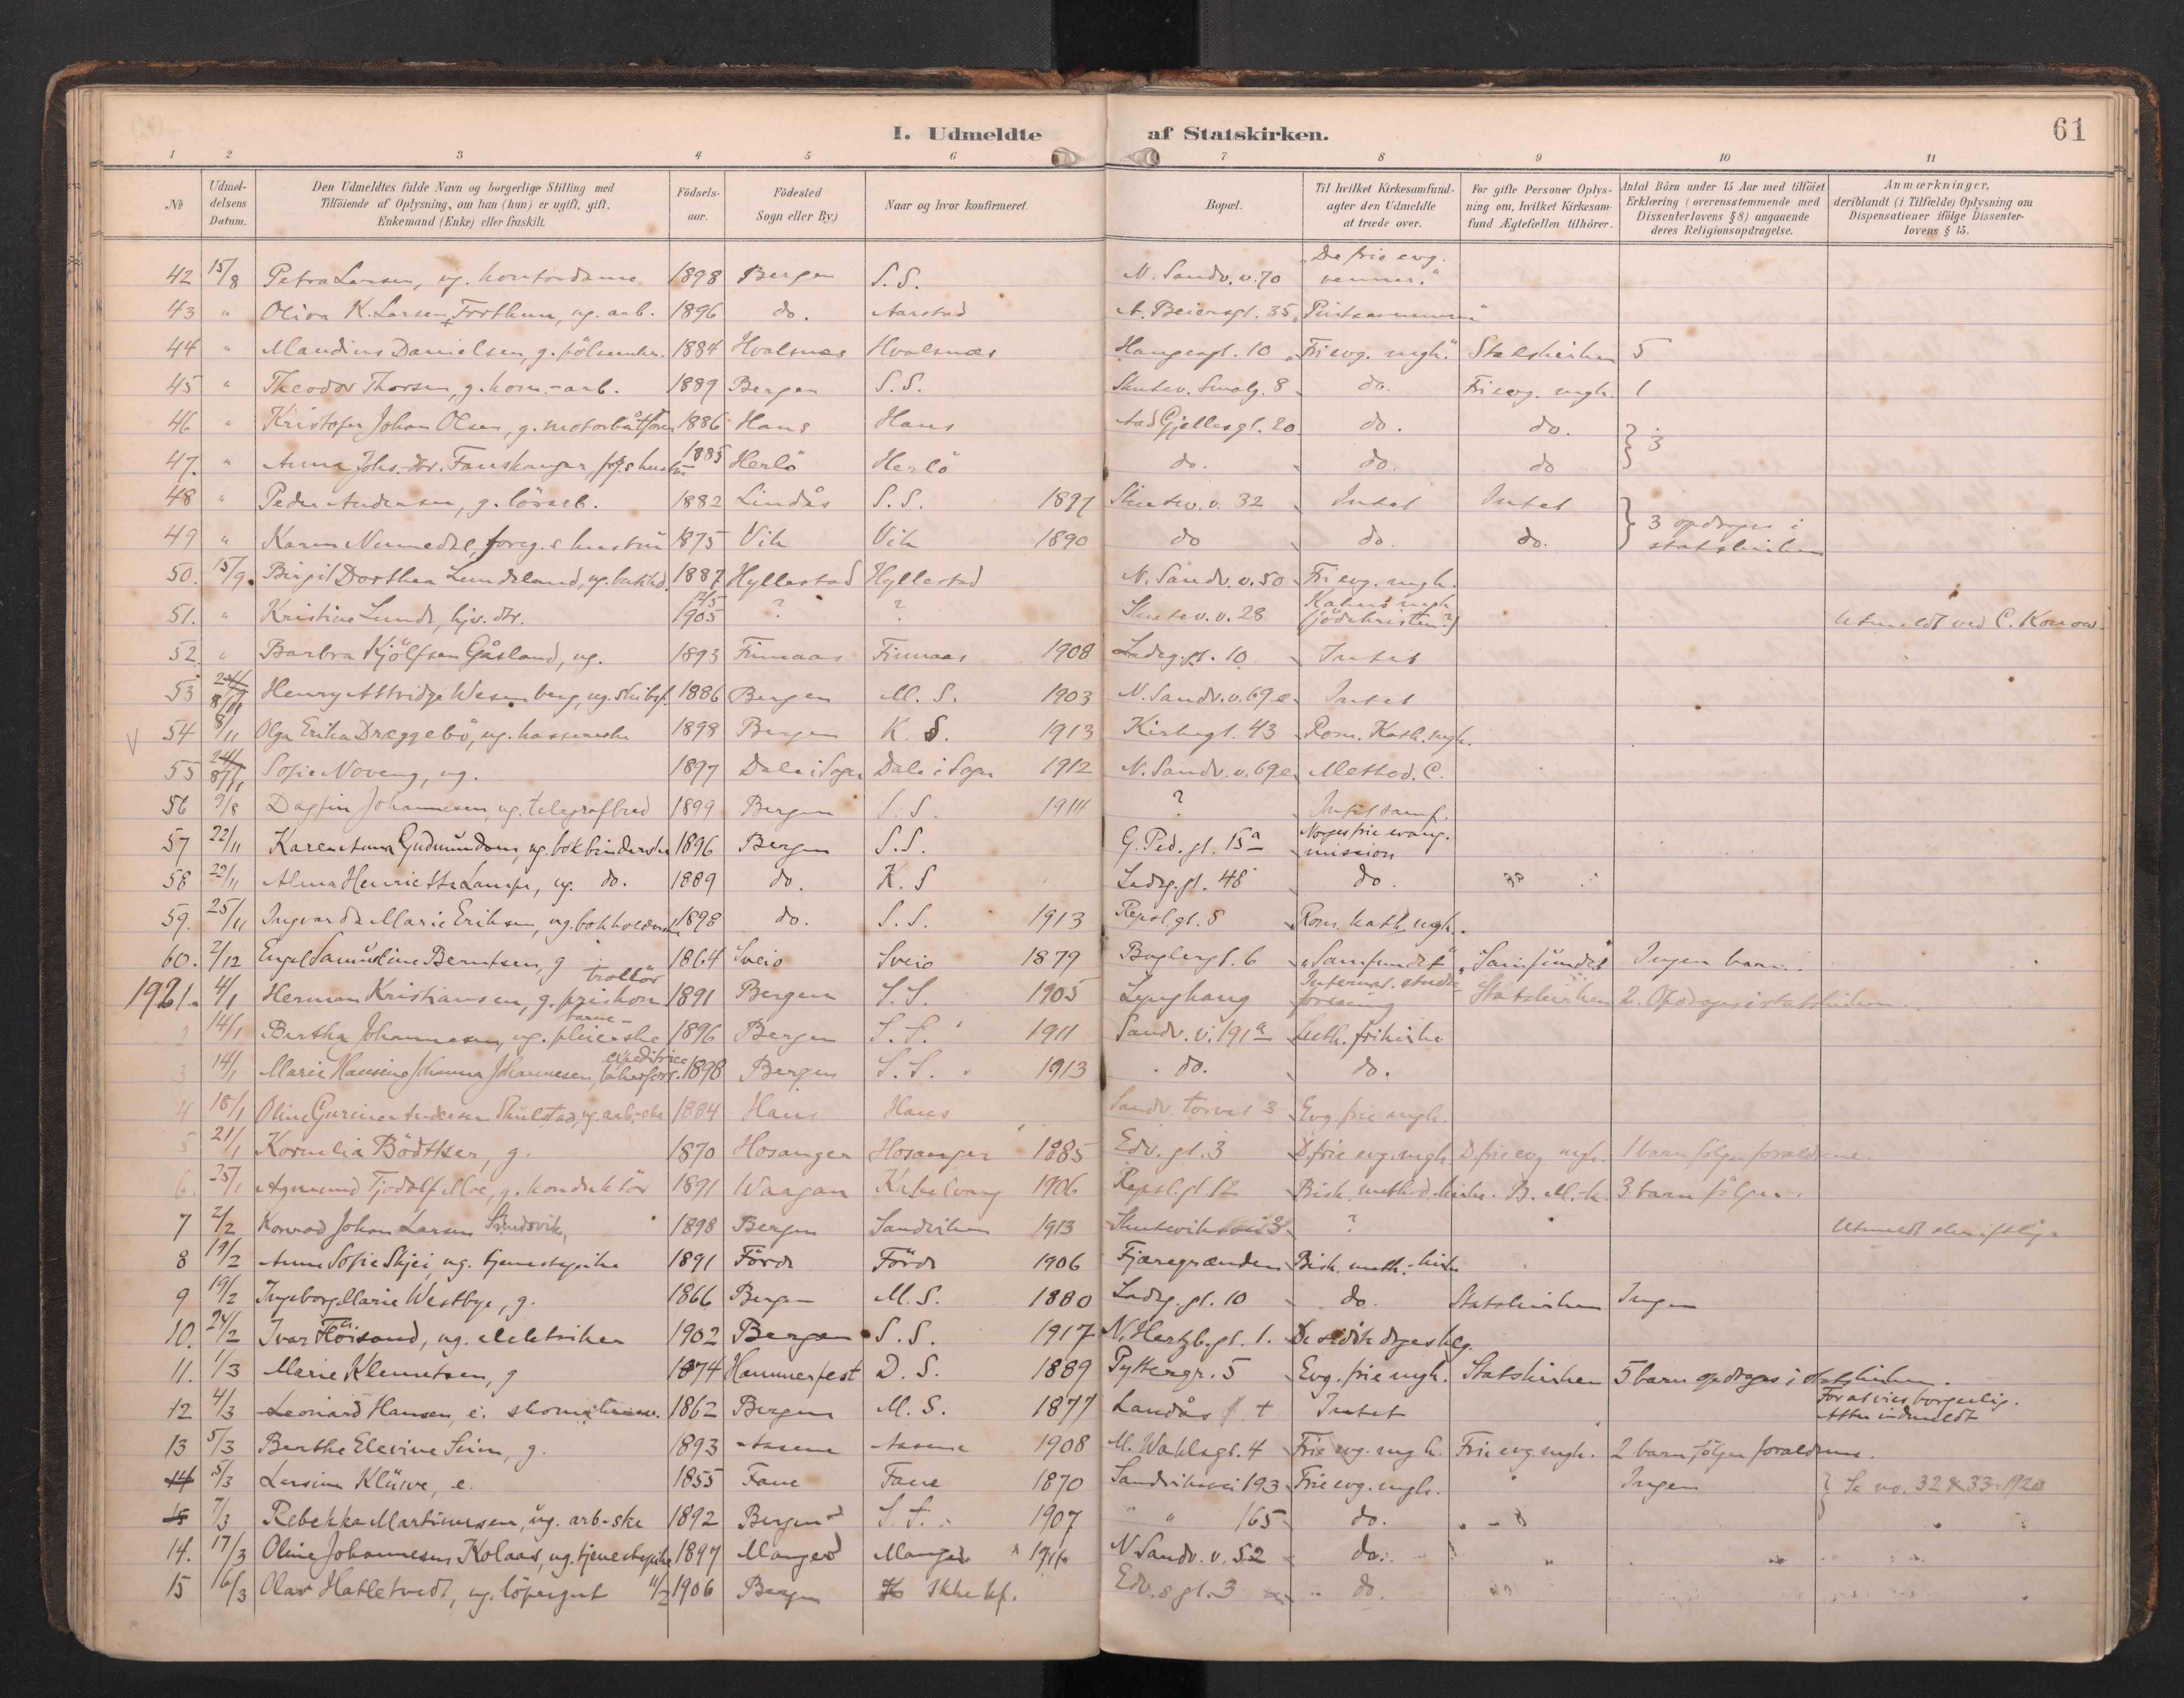 I. Udmeldte af Statskirken. 61
1 2 3 4 5 6 7 8 9 10 11
No
Udmeldelsens Datum.
Den Udmeldtes fulde Navn og borgerlige Stilling med Tilföiende af Oplysning, om han (hun) er ugift, gift, Enkemand (Enke) eller fraskilt.
Födselsaar.
Födested Sogn eller By.)
Naar og hvor konfirmeret.
Bopæl.
Til hvilket Kirkesamfund agter den Udmeldte at træde over.
For gifte Personer Oplysning om, hvilket Kirkesamfund Ægtefællen tilhörer.
Antal Börn under 15 Aar med tilföiet Erklæring (overensstemmende med Dissenterlovens §8) angaaende deres Religionsopdragelse.
Anmærkninger, deriblandt (i Tilfælde) Oplysning om Dispensationer ifölge Dissenterlovens § 15.
42 15/8 Petra Larsen, ug. kontordame 1898 Bergen S.S. N. Sandv.v. 70 "De frie evg. venner."
43 " Oliva K. Larsen Forthun, ug. arb. 1896 do. Aarstad A. Beiersgt. 35 "Pintsevennerne"
44 " Maudius Danielsen, g. 1884 Hvalsnæs Hvalsnæs Haugegt. 10 "Fri evg. mgh." Statskirken 5
45 " Theodor Thorsen, g. kom.-arb. 1889 Bergen S.S. Skutev. Smalg. 8 do. Fri evg. mgh. 1
46 " Kristofer Johan Olsen, g. motorbåtförer 1886 Haus Haus Gjellesgt. 20 do. do. } 3
47. " Anna Johs.-dtr. Fauskanger, frg.s hustru 1885 Herlö Herlö do. do. do
48 " Peder Andersen, g. lösarb. 1882 Lindås S.S. 1897 Skutev.v. 32 Intet Intet } 3 opdrages i statskirken
49 " Karen Nummedal, foreg.s hustru 1875 Vik Vik 1890 do do. do.
50. 15/9 Birgit Dorthea Lundeland, ug. 1887 Hyllestad Hyllestad N. Sandv.v. 50 Fri evg. mgh.
51. " Kristine Lunde, hjv. dtr. 2/5 1905 ? ? Skutev.v. 28 Kahns mgh. (jödekristen?) Utmeldt ved C. Konow.
52. " Barbra Kjölfsen Gåsland, ug. 1893 Finnaas Finnaas 1908 Ladeg.gt. 10 Intet
53 8/11 Henry Attridge Wesenberg, ug. 1886 Bergen M. S. 1903 N. Sandv.v. 69e Intet
V 54 8/11 Olga Erika Dræggebö, ug. kassererske 1898 Bergen K. S. 1913 Kirkegt. 43 Rom. Kath. mgh.
55 8/11 Sofie Noveng, ug. 1897 Dale i Sogn Dale i Sogn 1912 N. Sandv.v. 69e Method. C.
56 9/8 Dagfin Johannesen, ug. telegrafbud 1899 Bergen S.S. 1914 ? Intet samf.
57 22/11 Karen Anna Gudmundsen, ug. bokbinderske 1896 Bergen S.S. G. Ped.gt. 15a Norges frie evang. mission
58 22/11 Alma Henriette Lampe, ug. do. 1889 do. K. S Ladeg.gt. 48 do.
59. 25/11 Ingvarda Marie Eriksen, ug. bokholderske 1898 do. S.S. 1913 Repsl.gt. 8 Rom. kath. mgh.
60. 2/12 Engel Samueline Berntsen, g 1864 Sveio Sveio 1879 Baglergt. 6 "Samfundet" "Samfundet" Ingen barn.
1921. 4/1 Herman Kristiansen, g. 1891 Bergen S.S. 1905 Lynghaug Internat. studieforening Statskirken 2. Opdrages i statskirken.
2 14/1 Bertha Johannesen, ug. barnepleierske 1896 Bergen S.S. 1911 Sandv.v. 191a Luth. frikirke
3 14/1 Marie Hansine Johanna Johannesen, expeditrice 1898 Bergen S.S. 1913 do. do.
4 18/1 Oline Gurine Andersen ug. arb-ske 1884 Haus Haus Sandv. torvet 3 Evg. frie mgh.
5 21/1 Kornelia Bödtker, g. 1870 Hosanger Hosanger 1885 Edv.gt. 3 D. frie evg. mgh. D. frie evg mgh. 1 barn følger forældrene.
6. 25/1 Agmund Tjodolf g. konduktör 1891 Waagan Kabelvaag 1906 Repsl.gt 12 Bisk. method. kirke. B. M.-k. 3 barn følger.
7 2/2 Konrad Johan Larsen Sundsvik, 1898 Bergen Sandviken 1913 Skutevik ?
Utmeldt skriftlig.
8 19/2 Anne Sofie Skjei, ug. tjenestepike 1891 Förde Förde 1906 Fjæregrænden Bisk. meth.-kirke
9 19/2 Ingeborg Marie Westbye, g. 1866 Bergen M.S. 1880 Ladeg.gt. 10 do. Statskirken Ingen
10. 24/2 Ivar Flöisand, ug. elektriker 1902 Bergen S.S. 1917 N. Hertzb.gt. 1. De sidste dages hlg.
11. 1/3 Marie Klemetsen, g 1874 Hammerfest D. S. 1889 Pyttergr. 5 Evg. frie mgh. Statskirken 5 barn opdrages i statskirken.
12 4/3 Leonard Hansen, e. 1862 Bergen M. S. 1877 Landås + Intet For at vies borgerlig. Atter indmeldt
13 5/3 Berthe Elevine Seim, g. 1893 Aasene Aasene 1908 M. Wahlsgt. 4 Frie evg. mgh. Frie evg mgh. 2 barn følger forældrene.
14 5/3 Larsine Klüwe, e. 1855 Fane Fane 1870 Sandviksvei 193 Frie evg. mgh. Ingen } Se no. 32 & 33. 1920
15 7/3 Rebekka Martinusen, ug. arb-ske 1892 Bergen S.S. 1907 " " 165 do.
14. 17/3 Oline Johannesen Kolaas, ug. tjenestepike 1897 Manger Manger 1916 N Sandv.v. 52 do.
15 16/3 Olav Hatletvedt, ug. löpergut 11/2 1906 Bergen Ikke kf. Edv.sgt. 3 do.